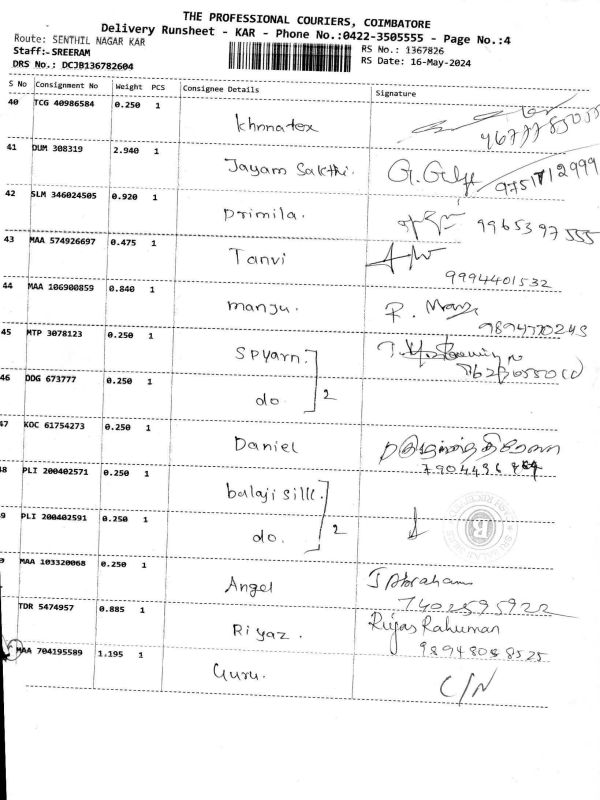 THE PROFESSIONAL COURIERS, COIMBATORE
Delivery Runsheet - KAR - Phone No.:0422-3505555 - Page No.:4
Route: SENTHIL NAGAR KAR
RS No.: 1367826
Staff:-SREERAM
RS Date: 16-May-2024
DRS No.: DCJB136782604
S No Consignment No Weight PCS Consignee Details Signature
40 TCG 40986584 0.250 1
khmatex
41 DUM 308319 2.940 1
Jayam Sakthi.
9751712999
42 SLM 346024505 0.920 1
Primila.
9965397555
43 MAA 574926697 0.475 1
Tanvi
9994401532
44 MAA 106900859 0.840 1
manju.
R.
45 MTP 3078123 0.250 1
SPyarn.
46 DDG 673777 0.250 1
do. 2
47 KOC 61754273 0.250 1
Daniel
48 PLI 200402571 0.250 1
balaji silk.
49 PLI 200402591 0.250 1
do. 2
MAA 103320068 0.250 1
Angel J Abraham
7402595922
TDR 5474957 0.885 1
Riyaz. Riyas Rahuman
MAA 704195589 1.195 1
Guru. C/N